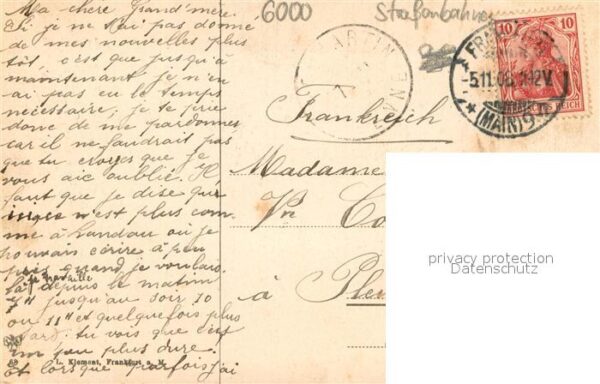 Ma chère Grand'mère
Si je ne t'ai pas donné
de mes nouvelles plus
tôt c'est que jusqu'à
maintenant je n'en
ai pas eu le temps
nécessaire; je te prie
donc de me pardonner
car il ne faudrait pas
que tu croyes que je
vous aie oublié. Il
faut que je dise que
n'est plus com-
me à Landau où je
pouvais écrire à peu
près quand je voulais.
je travaille
depuis le matin
7H jusqu'au soir 10
ou 11H et quelquefois plus
tard: tu vois que c'est
un peu plus dure.
Et lorsque parfois j'ai
L. Klement, Frankfurt a. M.
6000
Straßenbahnen
10
10
FRANKFURT
-5.11.08. 12V.
(MAIN) 9
REICH
Frankreich
Madame
Vve Co
à Ple
privacy protection
Datenschutz